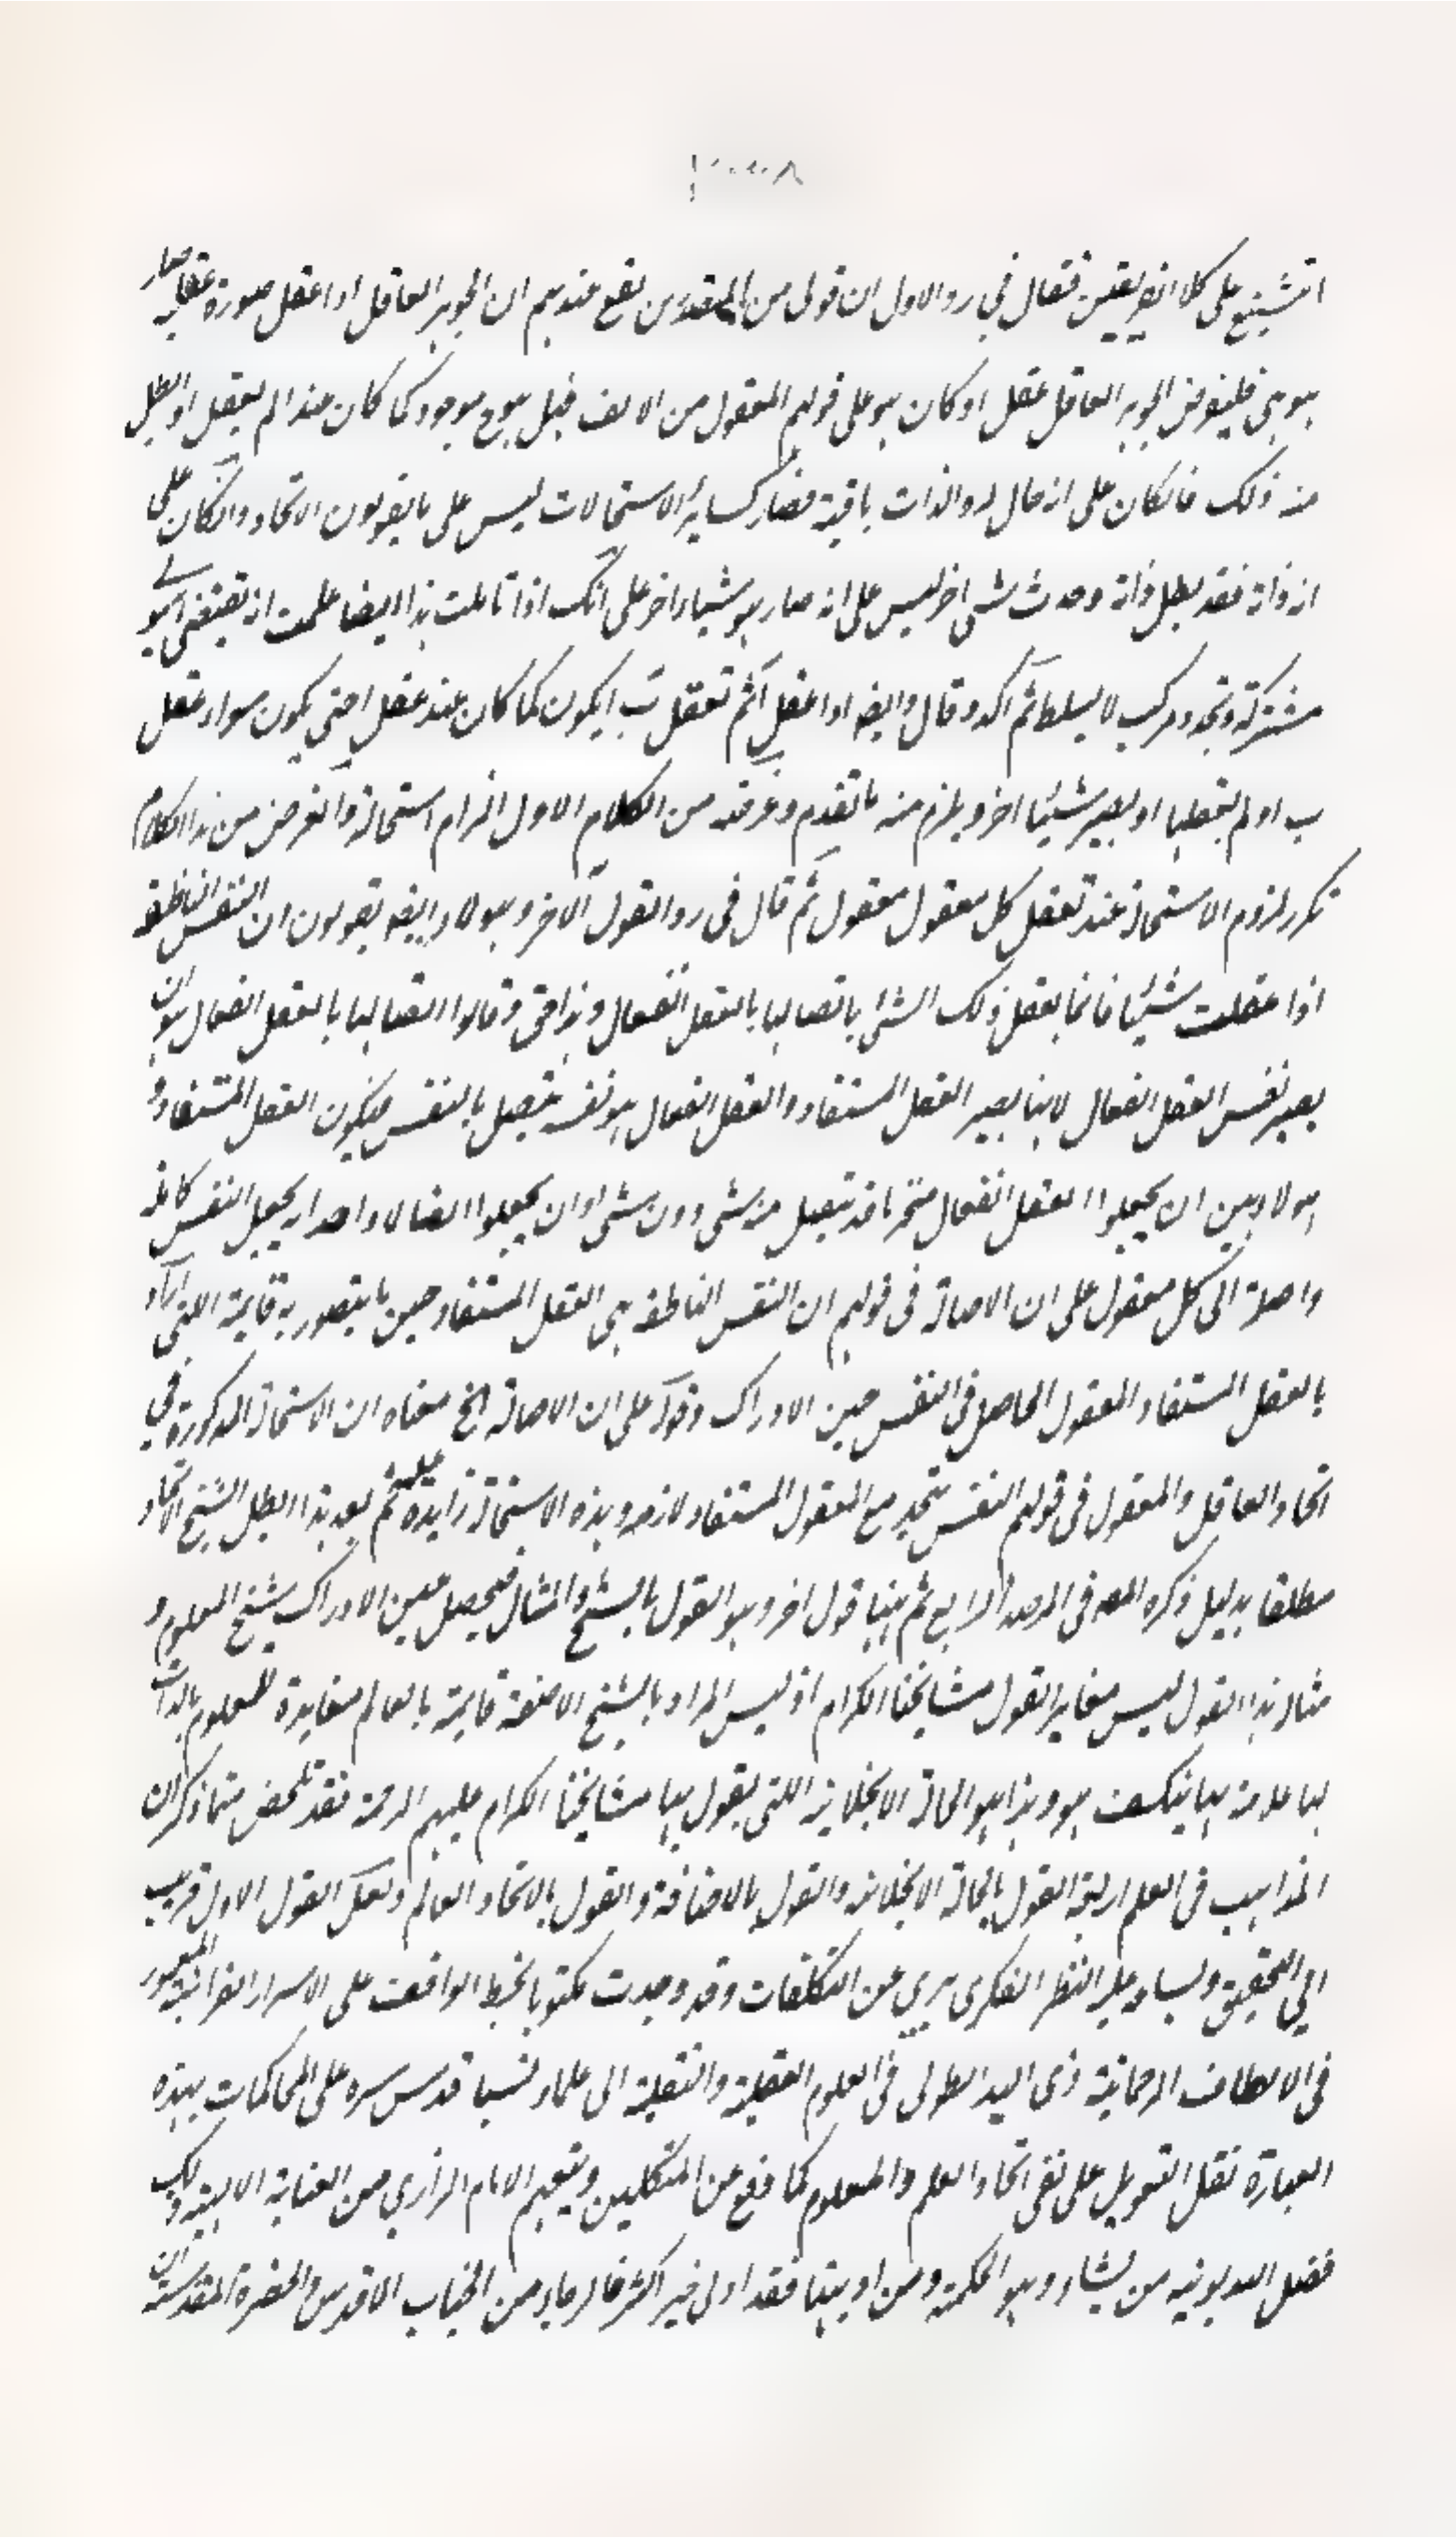 التشنيع على كلا الفريقين فقال في رد الاول ان قول من المتقدمين يقع عندهم ان الجوهر العاقل اذا عقل صورة عقلية صار
هو هي فلنفرض الجوهر العاقل عقل ا وكان هو على قولهم المعقول من الالف فهل هو ح موجود كما كان عند ما لم يعقل او بطل
منه ذلك فان كان على انه حال له والذات باقية فصار كساير الاستحالات ليس على ما يقولون الاتحاد وان كان على
انه ذاته فقد بطل ذاته وحدث شئ اخر ليس على انه صار هو شيئا اخر على انك اذا تاملت هذا ايضا علمت انه يقتضي هيولى
مشتركة وتجدد مركب لا بسيط ثم اكد وقال وايضا اذا عقل ا ثم تعقل ب ايكون كما كان عند عقل ا حتى يكون سواء عقل
ب او لم يعقلها او يصير شيئا اخر ويلزم منه ما تقدم وغرضه من الكلام الاول الزام استحالة والغرض من هذا الكلام
تكرر لزوم الاستحالة عند تعقل كل معقول معقول ثم قال في رد القول الاخر وهولاء ايضا يقولون ان النفس الناطقة
اذا عقلت شيئا فانما يعقل ذلك الشئ باتصالها بالعقل الفعال وهذا حق وقالوا اتصالها بالعقل الفعال هو ان
يصير نفس العقل الفعال لانها يصير العقل المستفاد والعقل الفعال هو نفسه يتصل بالنفس فيكون العقل المستفاد و
هولاء بين ان يجعلوا العقل الفعال متجزيا قد يتصل منه شئ دون شئ او ان يجعلوا اتصالا واحدا به يجعل النفس كاملة
واصلة الى كل معقول على ان الاحالة في قولهم ان النفس الناطقة هي العقل المستفاد حين ما يتصور به قايمة انتهى اراد
بالعقل المستفاد المعقول الحاصل في النفس حين الادراك وقوله على ان الاحالة الخ معناه ان الاستحالة المذكورة في
اتحاد العاقل والمعقول في قولهم النفس يتحد مع المعقول المستفاد لازمه وهذه الاستحالة زايدة عليه ثم بعد هذا ابطل الشيخ الاتحاد
مطلقا بدليل ذكره المص في المرصد الرابع ثم ههنا قول اخر وهو القول بالشبح والمثال فيحصل حين الادراك شبح المعلوم و
مثاله هذا القول ليس مغايرا لقول مشايخنا الكرام اذ ليس المراد بالشبح الا صفة قايمة بالعالم مغايرة للمعلوم بالذات
لها علامة بها ينكشف هو وهذا هو الحالة الانجلائية التي يقول بها مشايخنا الكرام عليهم الرحمة فقد تلخص مما ذكر ان
المذاهب في العلم اربعة القول بالحالة الانجلائية والقول بالاضافة والقول بالاتحاد العالم ولعل القول الاول قريب
الى التحقيق ويساعد عليه النظر الفكري بري عن التكلفات وقد وجدت مكتوبا بخط الواقف على الاسرار الفرانية المغمور
في الالطاف الرحمانية ذى اليد الطولى في العلوم العقلية والنقلية الى علماء نسبا قدس سره على المحاكمات بهذه
العبارة نقل التعويل على نفي اتحاد العلم والمعلوم كما وقع عن المتكلمين وتبعهم الامام الرازي من العناية الالهية وذلك
فضل الله يوتيه من يشاء وهو الحكمة ومن اوتيها فقد اوتي خير اكثر فالرجاء من الجناب الاقدس والحضرة المقدسة ان